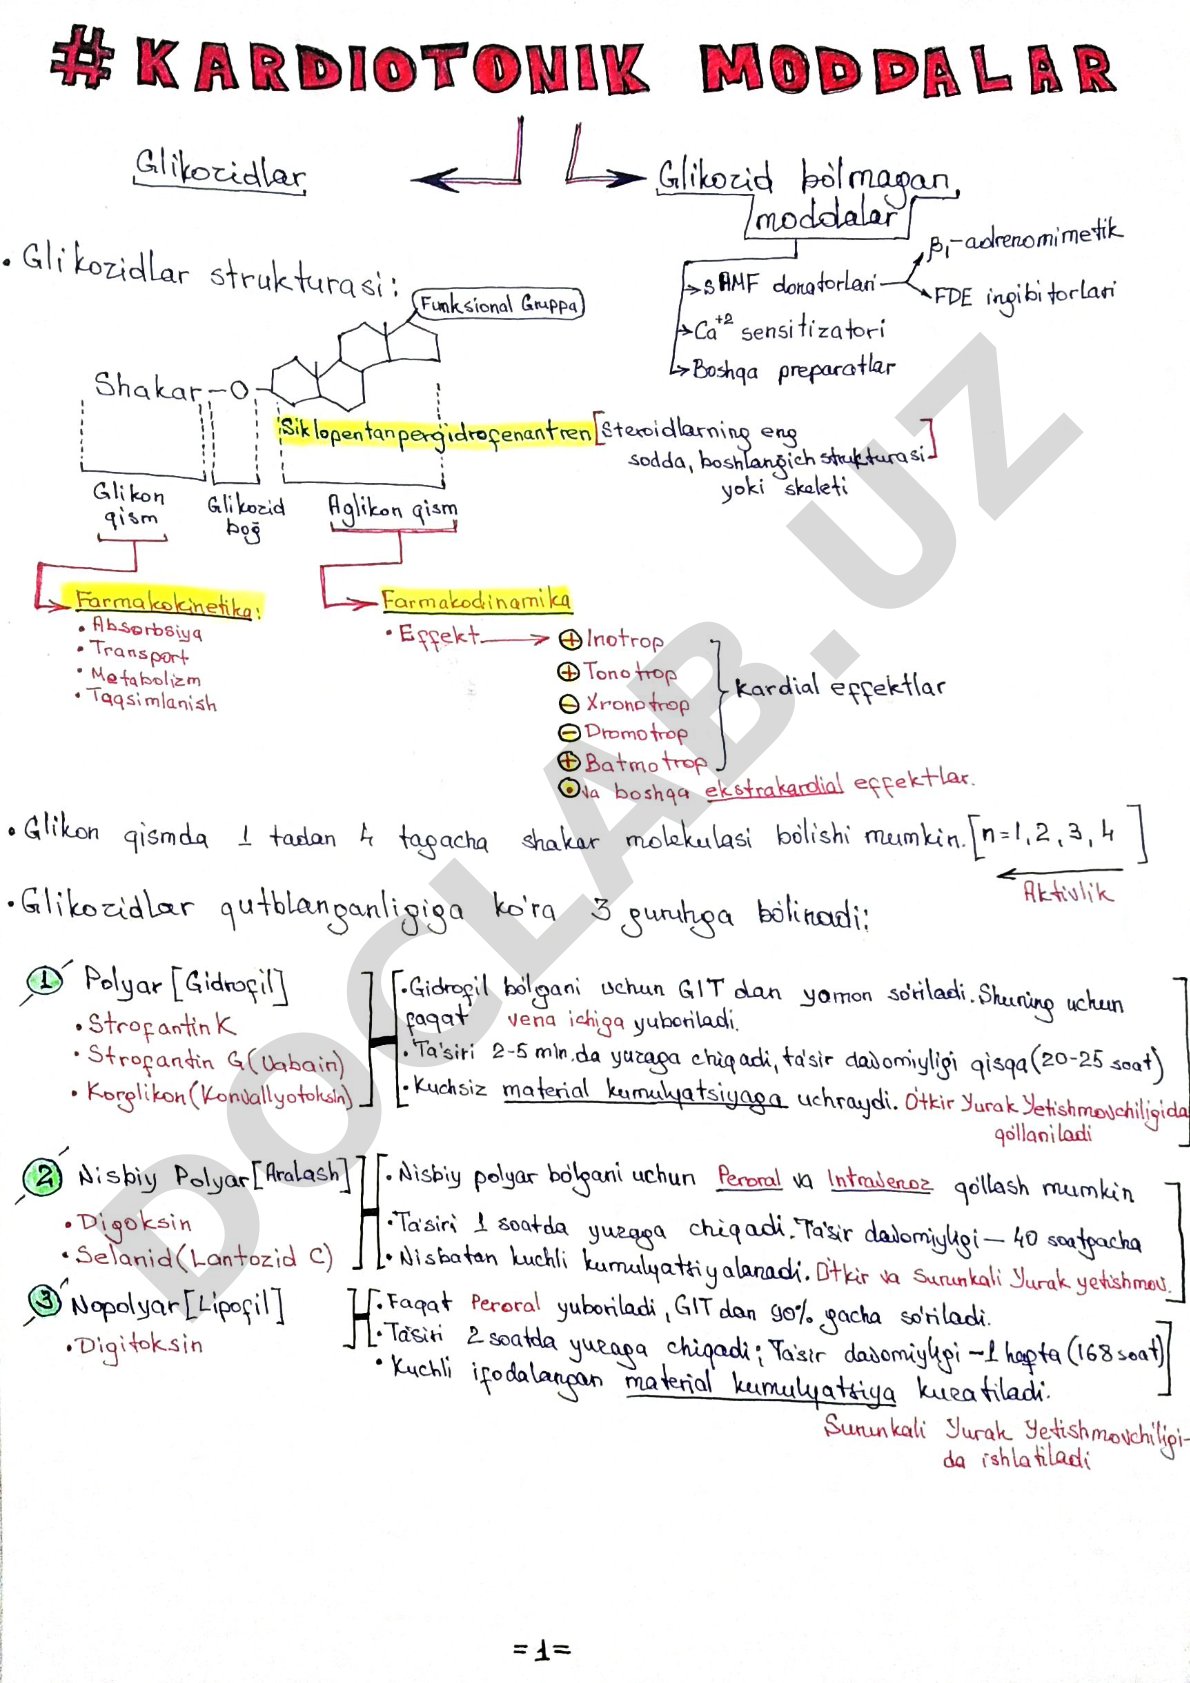 #KARDIOTONIK MODDALAR
Glikozidlar
Glikozid bo'lmagan
moddalar
β₁-adrenomimetik
sAMF donatorlari
FDE ingibitorlari
Ca⁺² sensitizatori
Boshqa preparatlar
• Glikozidlar strukturasi:
Funksional Gruppa
Shakar - O -
Siklopentanpergidrofenantren [Steroidlarning eng
sodda, boshlang'ich strukturasi]
yoki skeleti
Glikon
qism
Glikozid
bog'
Aglikon qism
Farmakokinetika:
• Absorbsiya
• Transport
• Metabolizm
• Taqsimlanish
Farmakodinamika
• Effekt
+ Inotrop
+ Tonotrop
- Xronotrop
- Dromotrop
+ Batmotrop
kardial effektlar
• va boshqa ekstrakardial effektlar.
• Glikon qismda 1 tadan 4 tagacha shakar molekulasi bo'lishi mumkin. [n=1, 2, 3, 4]
Aktivlik
• Glikozidlar qutblanganligiga ko'ra 3 guruhga bo'linadi:
1 Polyar [Gidrofil]
• Strofantin K
• Strofantin G (Uabain)
• Korglikon (Konvallyotoksin)
• Gidrofil bo'lgani uchun GIT dan yomon so'riladi. Shuning uchun
faqat vena ichiga yuboriladi.
• Ta'siri 2-5 min.da yuzaga chiqadi, ta'sir davomiyligi qisqa (20-25 soat)
• Kuchsiz material kumulyatsiyaga uchraydi. O'tkir Yurak Yetishmovchiligida
qo'llaniladi
2 Nisbiy Polyar [Aralash]
• Digoksin
• Selanid (Lantozid C)
• Nisbiy polyar bo'lgani uchun Peroral va Intravenoz qo'llash mumkin
• Ta'siri 1 soatda yuzaga chiqadi. Ta'sir davomiyligi - 40 soatgacha
• Nisbatan kuchli kumulyatsiyalanadi. O'tkir va Surunkali Yurak yetishmov.
3 Nopolyar [Lipofil]
• Digitoksin
• Faqat Peroral yuboriladi, GIT dan 90% gacha so'riladi.
• Ta'siri 2 soatda yuzaga chiqadi; Ta'sir davomiyligi - 1 hafta (168 soat)
• Kuchli ifodalangan material kumulyatsiya kuzatiladi.
Surunkali Yurak Yetishmovchiligi-
da ishlatiladi
=1=
DOCLAB.UZ